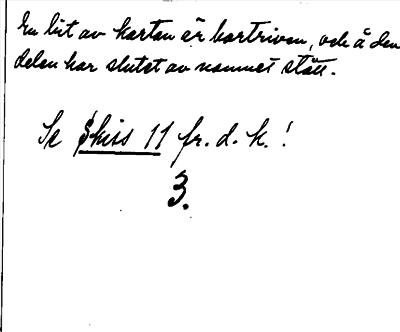 En bit av kartan är bortriven, och å den
delen har slutet av namnet stått.
Se Skiss 11 fr. d. k. !
3.